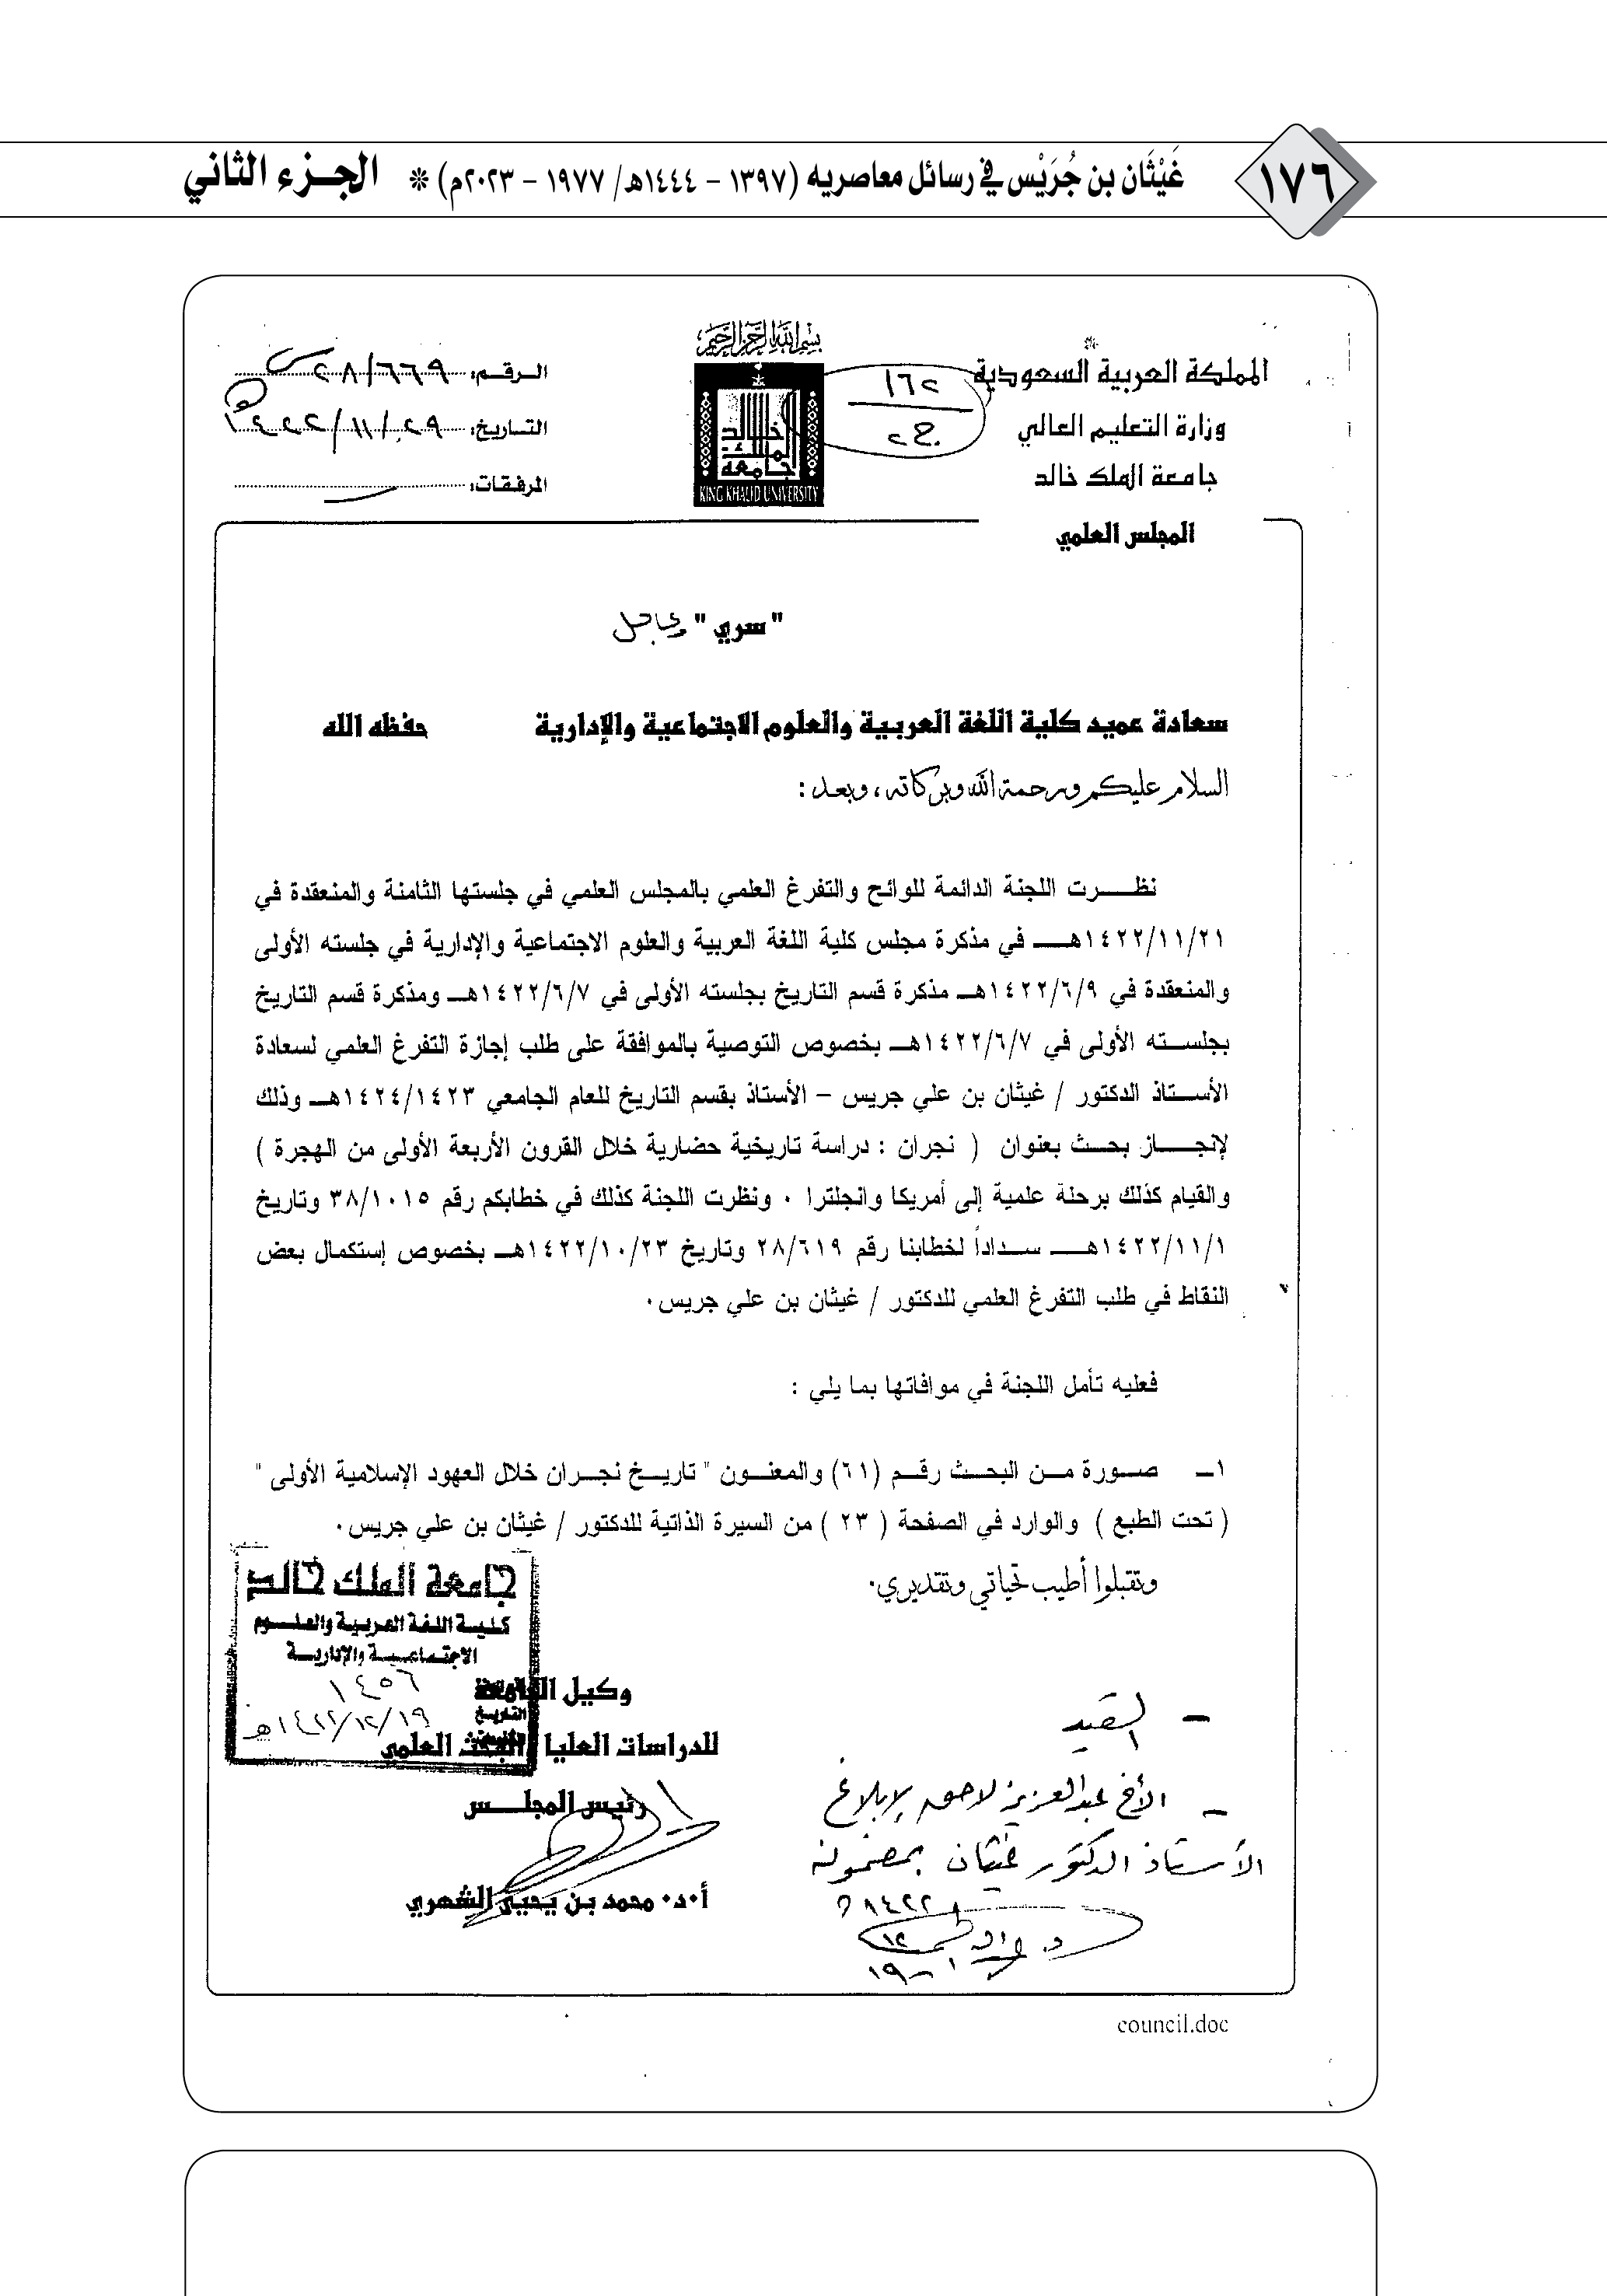 ١٧٦
غَيْثَان بن جُرَيْس في رسائل معاصريه (١٣٩٧ - ١٤٤٤هـ/ ١٩٧٧ - ٢٠٢٣م) * الجـزء الثاني
بسم الله الرحمن الرحيم
المملكة العربية السعودية
وزارة التعليم العالي
جامعة الملك خالد
المجلس العلمي
١٦٢
ج٢
جامعة الملك خالد
KING KHALID UNIVERSITY
الـرقـم: ٢٨/٦٦٩ س
التـاريخ: ١٤٢٢/١١/٢٩ هـ
المرفـقـات:
" سري " وعاجل
سعادة عميد كلية اللغة العربية والعلوم الاجتماعية والإدارية حفظه الله
السلام عليكم ورحمة الله وبركاته ، وبعد :
نظــرت اللجنة الدائمة للوائح والتفرغ العلمي بالمجلس العلمي في جلستها الثامنة والمنعقدة في
١٤٢٢/١١/٢١هــ في مذكرة مجلس كلية اللغة العربية والعلوم الاجتماعية والإدارية في جلسته الأولى
والمنعقدة في ١٤٢٢/٦/٩هـ مذكرة قسم التاريخ بجلسته الأولى في ١٤٢٢/٦/٧هـ ومذكرة قسم التاريخ
بجلســته الأولى في ١٤٢٢/٦/٧هـ بخصوص التوصية بالموافقة على طلب إجازة التفرغ العلمي لسعادة
الأســتاذ الدكتور / غيثان بن علي جريس – الأستاذ بقسم التاريخ للعام الجامعي ١٤٢٤/١٤٢٣هـ وذلك
لإنجــــاز بحـث بعنوان ( نجران : دراسة تاريخية حضارية خلال القرون الأربعة الأولى من الهجرة )
والقيام كذلك برحلة علمية إلى أمريكا وانجلترا ٠ ونظرت اللجنة كذلك في خطابكم رقم ٣٨/١٠١٥ وتاريخ
١٤٢٢/١١/١هــ ســداداً لخطابنا رقم ٢٨/٦١٩ وتاريخ ١٤٢٢/١٠/٢٣هـ بخصوص إستكمال بعض
النقاط في طلب التفرغ العلمي للدكتور / غيثان بن علي جريس٠
فعليه تأمل اللجنة في موافاتها بما يلي :
١ـ صــورة مــن البحــث رقــم (٦١) والمعنــون " تاريــخ نجــران خلال العهود الإسلامية الأولى "
( تحت الطبع ) والوارد في الصفحة ( ٢٣ ) من السيرة الذاتية للدكتور / غيثان بن علي جريس٠
وتقبلوا أطيب تحياتي وتقديري٠
جامعة الملك خالد
كـليـة اللغـة العربية والعلــوم
الاجتمـاعيــة والإداريــة
١٤٥٦
التاريخ ١٤٢٢/١٢/١٩هـ
وكيل الجامعة
للدراسات العليا والبحث العلمي
رئيس المجلــس
أ٠د٠ محمد بن يحيى الشهري
– للقيد
– الأخ عبدالعزيز لاحق لإبلاغ
الأستاذ الدكتور غيثان بمضمونه
١٤٢٢
١٢
١٩
council.doc